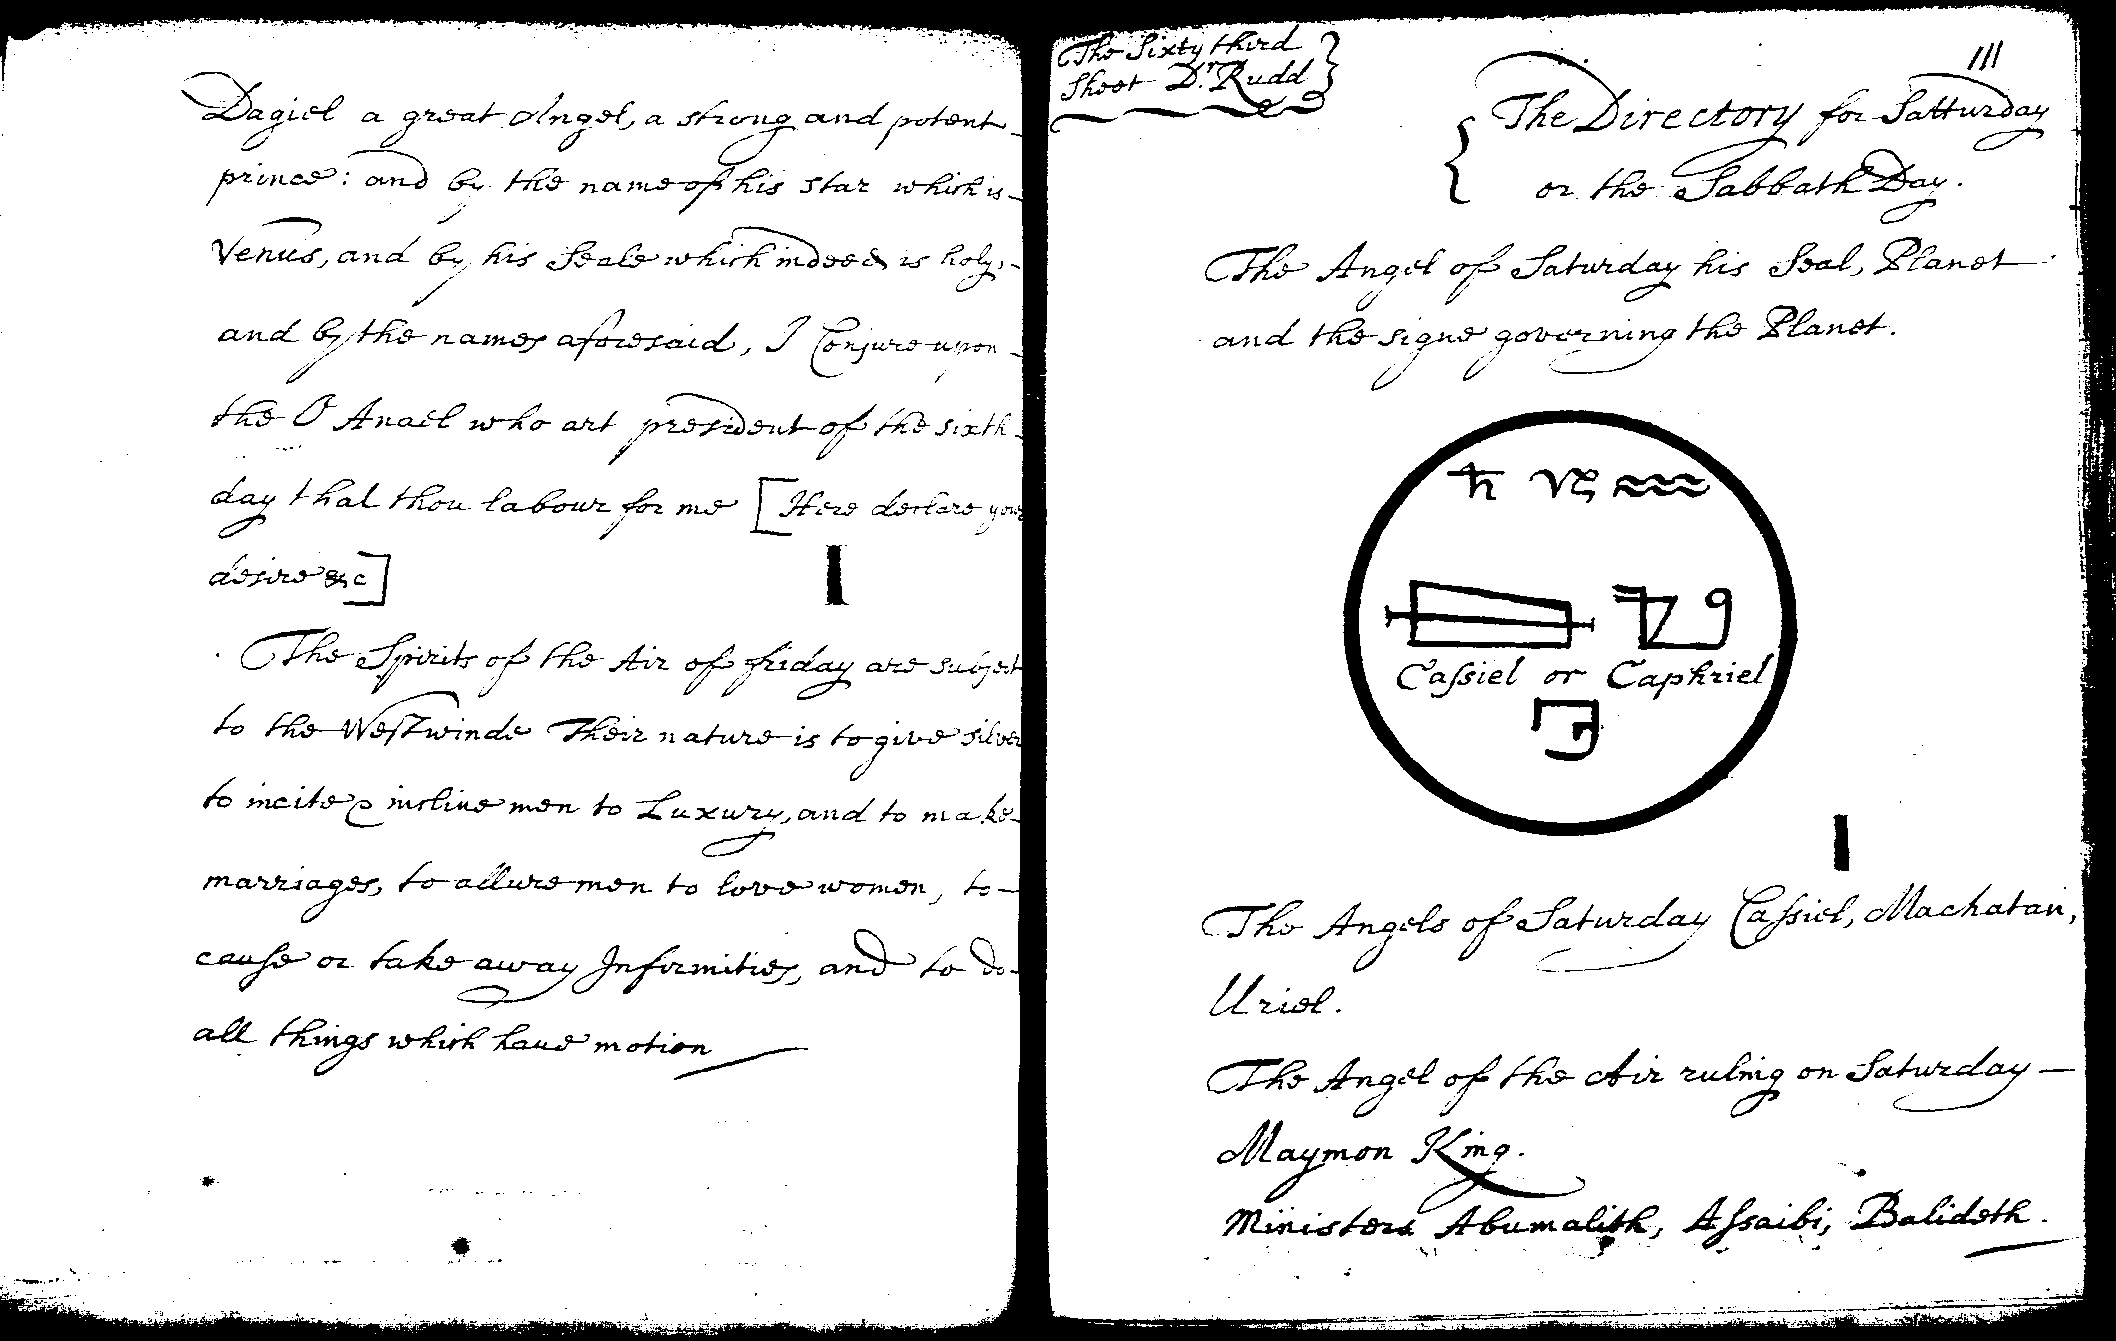 Dagiel a great Angel, a strong and potent
prince: and by the name of his star which is
Venus, and by his Seale which indeed is holy,
and by the names aforesaid, I Conjure upon
the O Anael who art president of the sixth
day that thou labour for me [Here declare your
desire &c]
The Spirits of the Air of friday are subject
to the Westwinde Their nature is to give silver
to incite & incline men to Luxury, and to make
marriages, to allure men to love women, to
cause or take away Infirmities, and to do
all things which have motion
The Sixty third
Sheet Dr. Rudd
111
The Directory for Satturday
or the Sabbath Day.
The Angel of Saturday his Seal, Planet
and the signe governing the Planet.
♄ ♑ ♒
Cassiel or Caphriel
The Angels of Saturday Cassiel, Machatan,
Uriel.
The Angel of the Air ruling on Saturday
Maymon King.
Ministers Abumalith, Assaibi, Balideth.